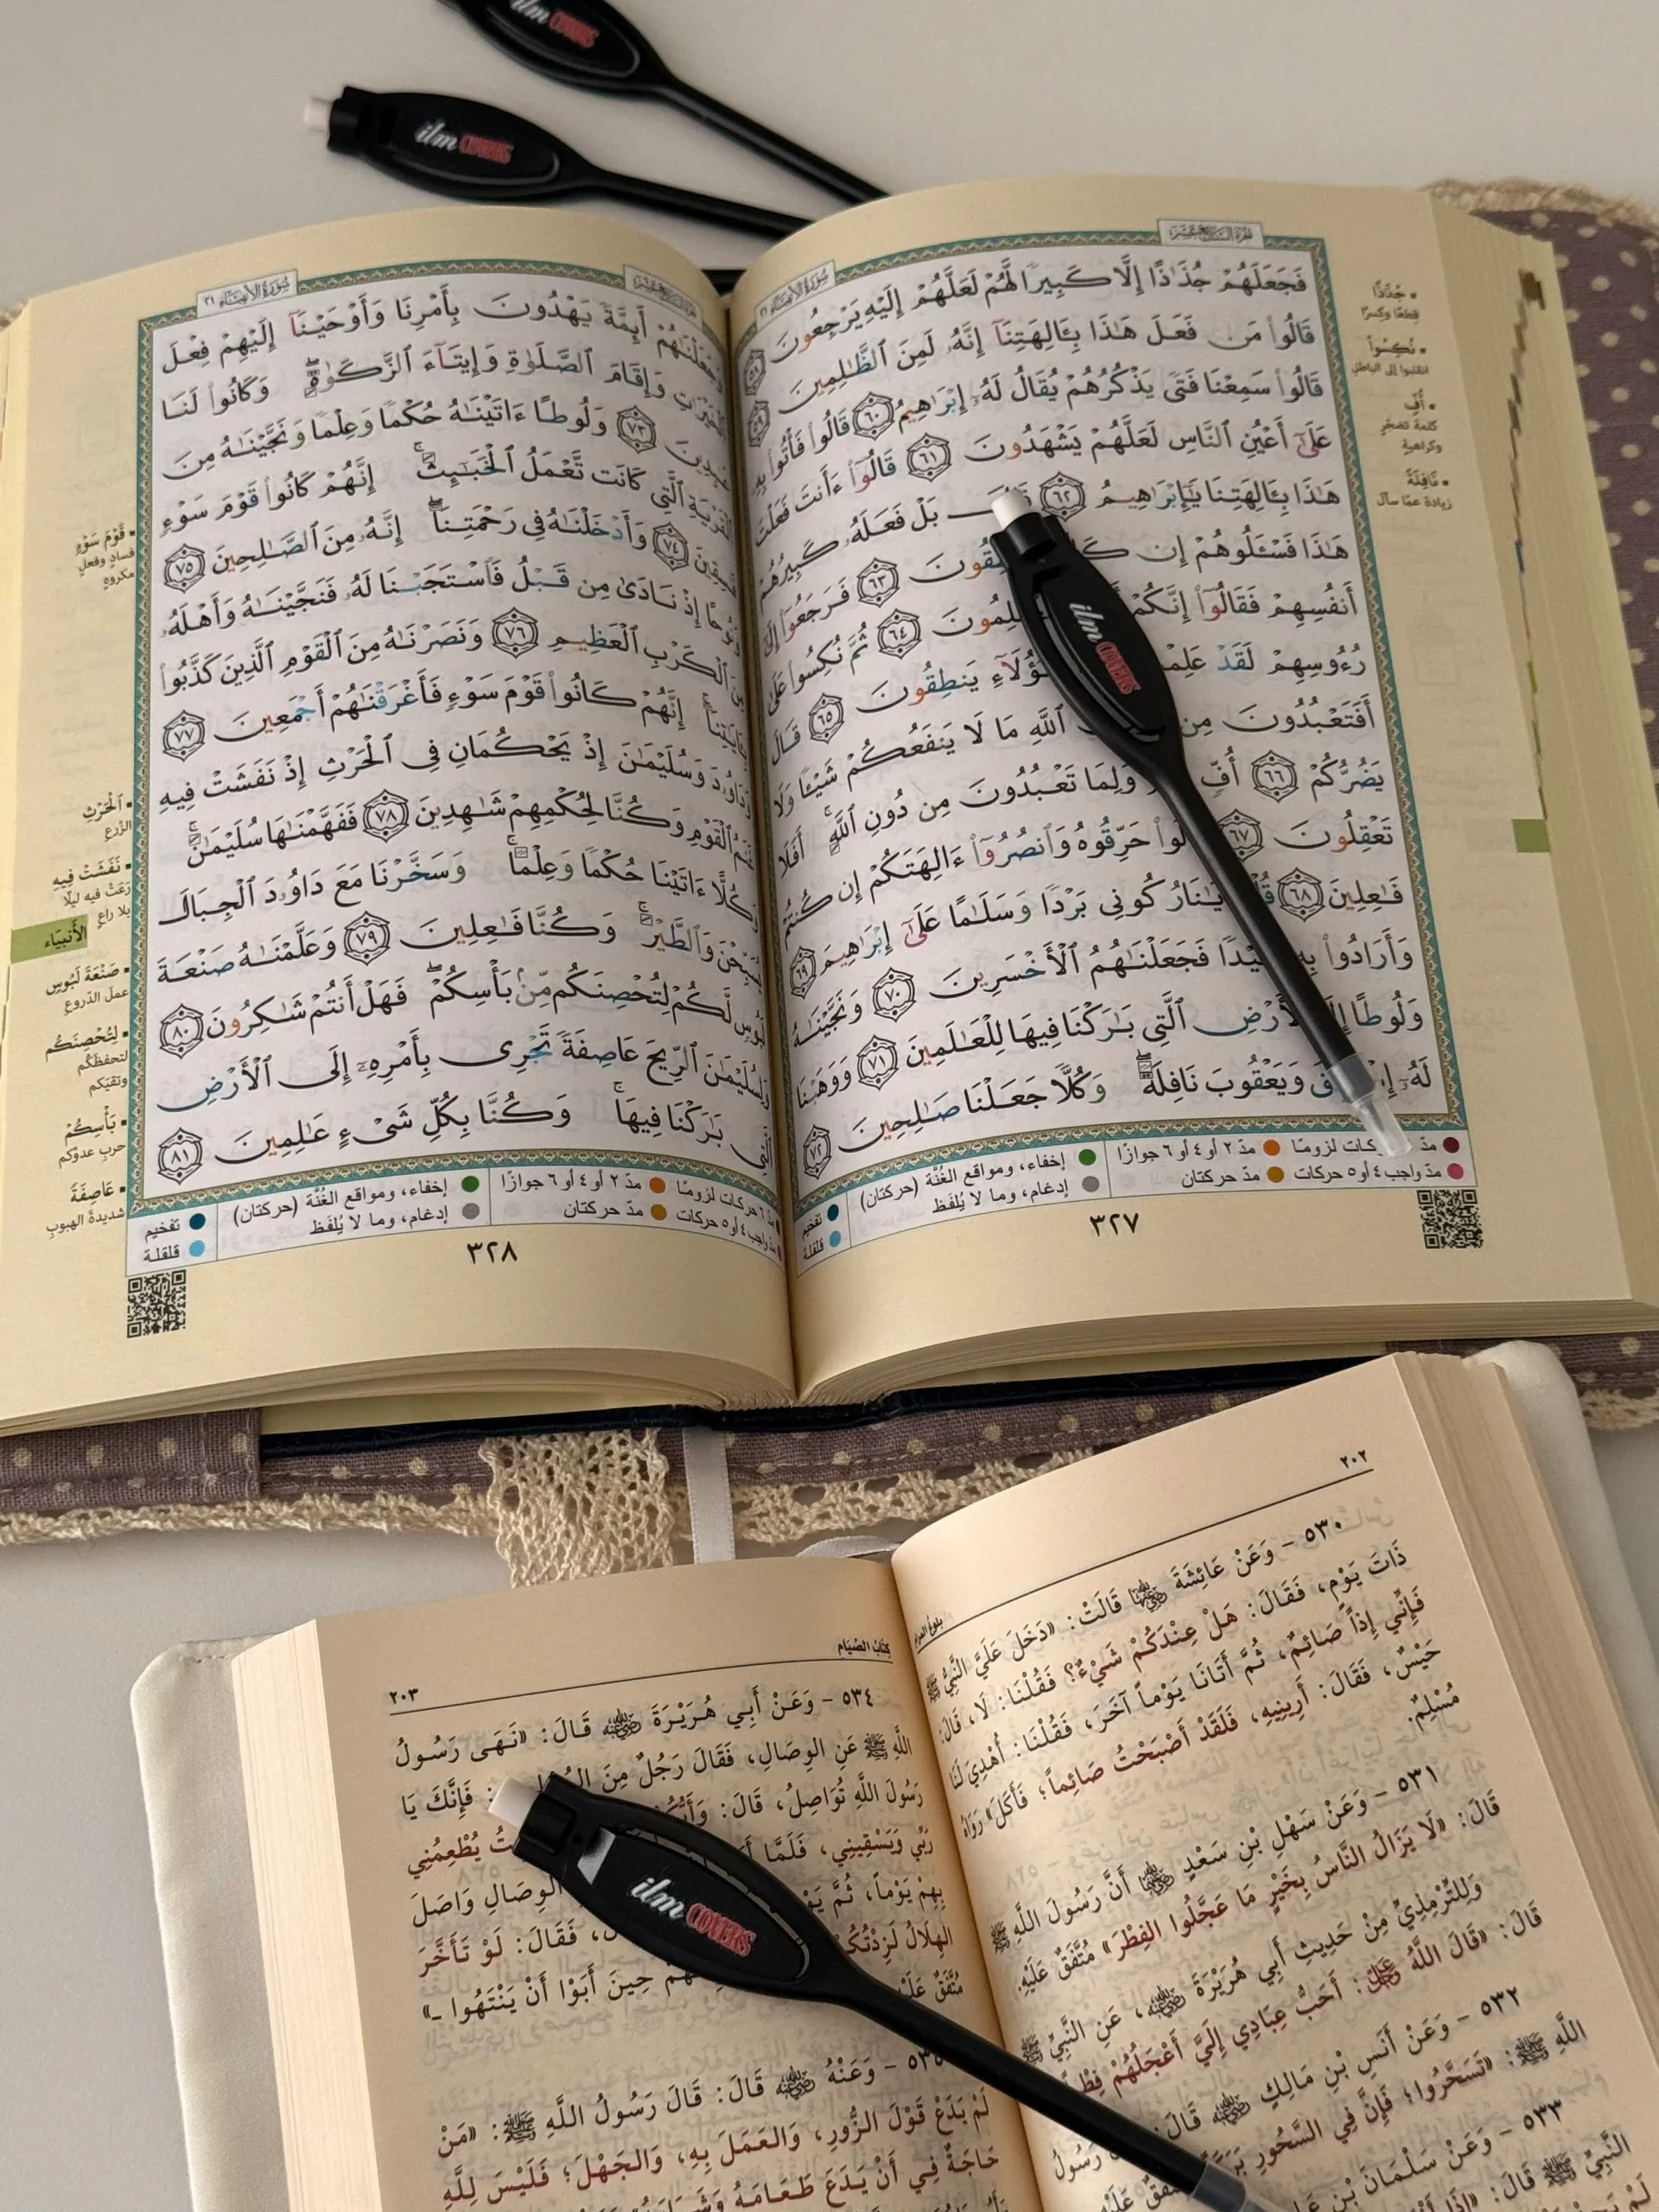 ilm COVERS
ilm COVERS
سُورَةُ الأَنبِيَاءِ ٢١
فَجَعَلَهُمْ جُذَٰذًا إِلَّا كَبِيرًا لَّهُمْ لَعَلَّهُمْ إِلَيْهِ يَرْجِعُونَ
قَالُوا۟ مَن فَعَلَ هَٰذَا بِـَٔالِهَتِنَآ إِنَّهُۥ لَمِنَ ٱلظَّٰلِمِينَ ٥٩
قَالُوا۟ سَمِعْنَا فَتًى يَذْكُرُهُمْ يُقَالُ لَهُۥٓ إِبْرَٰهِيمُ ٦٠ قَالُوا۟ فَأْتُوا۟ بِهِۦ
عَلَىٰٓ أَعْيُنِ ٱلنَّاسِ لَعَلَّهُمْ يَشْهَدُونَ ٦١ قَالُوٓا۟ ءَأَنتَ فَعَلْتَ
هَٰذَا بِـَٔالِهَتِنَا يَٰٓإِبْرَٰهِيمُ ٦٢ بَلْ فَعَلَهُۥ كَبِيرُهُمْ
هَٰذَا فَسْـَٔلُوهُمْ إِن ٦٣ فَرَجَعُوٓا۟ إِلَىٰٓ
أَنفُسِهِمْ فَقَالُوٓا۟ إِنَّكُمْ ٦٤ ثُمَّ نُكِسُوا۟ عَلَىٰ
رُءُوسِهِمْ لَقَدْ يَنطِقُونَ ٦٥ قَالَ
أَفَتَعْبُدُونَ مِن ٱللَّهِ مَا لَا يَنفَعُكُمْ شَيْـًٔا وَلَا
يَضُرُّكُمْ ٦٦ أُفٍّ وَلِمَا تَعْبُدُونَ مِن دُونِ ٱللَّهِ أَفَلَا
تَعْقِلُونَ ٦٧ حَرِّقُوهُ وَٱنصُرُوٓا۟ ءَالِهَتَكُمْ إِن كُنتُمْ
فَٰعِلِينَ ٦٨ يَٰنَارُ كُونِى بَرْدًا وَسَلَٰمًا عَلَىٰٓ إِبْرَٰهِيمَ ٦٩
وَأَرَادُوا۟ فَجَعَلْنَٰهُمُ ٱلْأَخْسَرِينَ ٧٠ وَنَجَّيْنَٰهُ
وَلُوطًا ٱلَّتِى بَٰرَكْنَا فِيهَا لِلْعَٰلَمِينَ ٧١ وَوَهَبْنَا
لَهُۥٓ وَيَعْقُوبَ نَافِلَةً وَكُلًّا جَعَلْنَا صَٰلِحِينَ ٧٢
• جُذَٰذًا
قِطعًا وكِسرًا
• نُكِسُوا۟
انقلبوا إلى الباطل
• أُفٍّ
كلمة تضجّر
وكراهية
• نَافِلَةً
زيادة عمّا سأل
ilm COVERS
مدّ واجب ٤ أو ٥ حركات
مدّ ٢ أو ٤ أو ٦ جوازًا
مدّ حركتان
إخفاء، ومواقع الغُنَّة (حركتان)
إدغام، وما لا يُلفَظ
تفخيم
قلقلة
٣٢٧
سُورَةُ الأَنبِيَاءِ ٢١
أَئِمَّةً يَهْدُونَ بِأَمْرِنَا وَأَوْحَيْنَآ إِلَيْهِمْ فِعْلَ
وَإِقَامَ ٱلصَّلَوٰةِ وَإِيتَآءَ ٱلزَّكَوٰةِ وَكَانُوا۟ لَنَا
٧٣ وَلُوطًا ءَاتَيْنَٰهُ حُكْمًا وَعِلْمًا وَنَجَّيْنَٰهُ مِنَ
ٱلَّتِى كَانَت تَّعْمَلُ ٱلْخَبَٰٓئِثَ إِنَّهُمْ كَانُوا۟ قَوْمَ سَوْءٍ
٧٤ وَأَدْخَلْنَٰهُ فِى رَحْمَتِنَآ إِنَّهُۥ مِنَ ٱلصَّٰلِحِينَ ٧٥
إِذْ نَادَىٰ مِن قَبْلُ فَٱسْتَجَبْنَا لَهُۥ فَنَجَّيْنَٰهُ وَأَهْلَهُۥ
ٱلْكَرْبِ ٱلْعَظِيمِ ٧٦ وَنَصَرْنَٰهُ مِنَ ٱلْقَوْمِ ٱلَّذِينَ كَذَّبُوا۟
إِنَّهُمْ كَانُوا۟ قَوْمَ سَوْءٍ فَأَغْرَقْنَٰهُمْ أَجْمَعِينَ ٧٧
وَسُلَيْمَٰنَ إِذْ يَحْكُمَانِ فِى ٱلْحَرْثِ إِذْ نَفَشَتْ فِيهِ
ٱلْقَوْمِ وَكُنَّا لِحُكْمِهِمْ شَٰهِدِينَ ٧٨ فَفَهَّمْنَٰهَا سُلَيْمَٰنَ
ءَاتَيْنَا حُكْمًا وَعِلْمًا وَسَخَّرْنَا مَعَ دَاوُۥدَ ٱلْجِبَالَ
وَٱلطَّيْرَ وَكُنَّا فَٰعِلِينَ ٧٩ وَعَلَّمْنَٰهُ صَنْعَةَ
لَّكُمْ لِتُحْصِنَكُم مِّنۢ بَأْسِكُمْ فَهَلْ أَنتُمْ شَٰكِرُونَ ٨٠
ٱلرِّيحَ عَاصِفَةً تَجْرِى بِأَمْرِهِۦٓ إِلَى ٱلْأَرْضِ
بَٰرَكْنَا فِيهَا وَكُنَّا بِكُلِّ شَىْءٍ عَٰلِمِينَ ٨١
• قَوْمَ سَوْءٍ
فسادٍ وفعلٍ
مكروهٍ
• ٱلْحَرْثِ
الزّرع
• نَفَشَتْ فِيهِ
رَعَتْ فيه ليلًا
بلا راعٍ
الأنبياء
• صَنْعَةَ لَبُوسٍ
عمل الدّروع
• لِتُحْصِنَكُم
لتحفظكم
وتقيَكم
• بَأْسِكُمْ
حربِ عدوّكم
• عَاصِفَةً
شديدةَ الهبوب
٦ حركات لزومًا
واجب ٤ أو ٥ حركات
مدّ ٢ أو ٤ أو ٦ جوازًا
مدّ حركتان
إخفاء، ومواقع الغُنَّة (حركتان)
إدغام، وما لا يُلفَظ
تفخيم
قلقلة
٣٢٨
٢٠٢
٥٣٠ - وَعَنْ عَائِشَةَ رضي الله عنها قَالَتْ: «دَخَلَ عَلَيَّ النَّبِيُّ ﷺ
ذَاتَ يَوْمٍ، فَقَالَ: هَلْ عِنْدَكُمْ شَيْءٌ؟ فَقُلْنَا: لَا، قَالَ:
فَإِنِّي إِذاً صَائِمٌ، ثُمَّ أَتَانَا يَوْماً آخَرَ، فَقُلْنَا: أُهْدِيَ لَنَا
حَيْسٌ، فَقَالَ: أَرِينِيهِ، فَلَقَدْ أَصْبَحْتُ صَائِماً؛ فَأَكَلَ» رَوَاهُ
مُسْلِمٌ.
٥٣١ - وَعَنْ سَهْلِ بْنِ سَعْدٍ رضي الله عنه أَنَّ رَسُولَ اللَّهِ ﷺ
قَالَ: «لَا يَزَالُ النَّاسُ بِخَيْرٍ مَا عَجَّلُوا الفِطْرَ» مُتَّفَقٌ عَلَيْهِ.
وَلِلتِّرْمِذِيِّ مِنْ حَدِيثِ أَبِي هُرَيْرَةَ رضي الله عنه، عَنِ النَّبِيِّ ﷺ
قَالَ: «قَالَ اللَّهُ عز وجل: أَحَبُّ عِبَادِي إِلَيَّ أَعْجَلُهُمْ
٥٣٢ - وَعَنْ أَنَسِ بْنِ مَالِكٍ رضي الله عنه قَالَ: رَسُولُ
اللَّهِ ﷺ: «تَسَحَّرُوا؛ فَإِنَّ فِي السَّحُورِ
٥٣٣ - وَعَنْ سَلْمَانَ بْنِ
النَّبِيِّ ﷺ قَالَ:
كِتَابُ الصِّيَامِ
٢٠٣
٥٣٤ - وَعَنْ أَبِي هُرَيْرَةَ رضي الله عنه قَالَ: «نَهَى رَسُولُ
اللَّهِ ﷺ عَنِ الوِصَالِ، فَقَالَ رَجُلٌ مِنَ فَإِنَّكَ يَا
رَسُولَ اللَّهِ تُوَاصِلُ، قَالَ: يُطْعِمُنِي
رَبِّي وَيَسْقِينِي، فَلَمَّا الوِصَالِ وَاصَلَ
بِهِمْ يَوْماً، ثُمَّ فَقَالَ: لَوْ تَأَخَّرَ
الهِلَالُ لَزِدْتُكُمْ حِينَ أَبَوْا أَنْ يَنْتَهُوا -»
مُتَّفَقٌ
ilm COVERS
٥٣٥ - وَعَنْهُ رضي الله عنه قَالَ: قَالَ رَسُولُ اللَّهِ ﷺ: «مَنْ
لَمْ يَدَعْ قَوْلَ الزُّورِ، وَالعَمَلَ بِهِ، وَالجَهْلَ؛ فَلَيْسَ لِلَّهِ
حَاجَةٌ فِي أَنْ يَدَعَ طَعَامَهُ